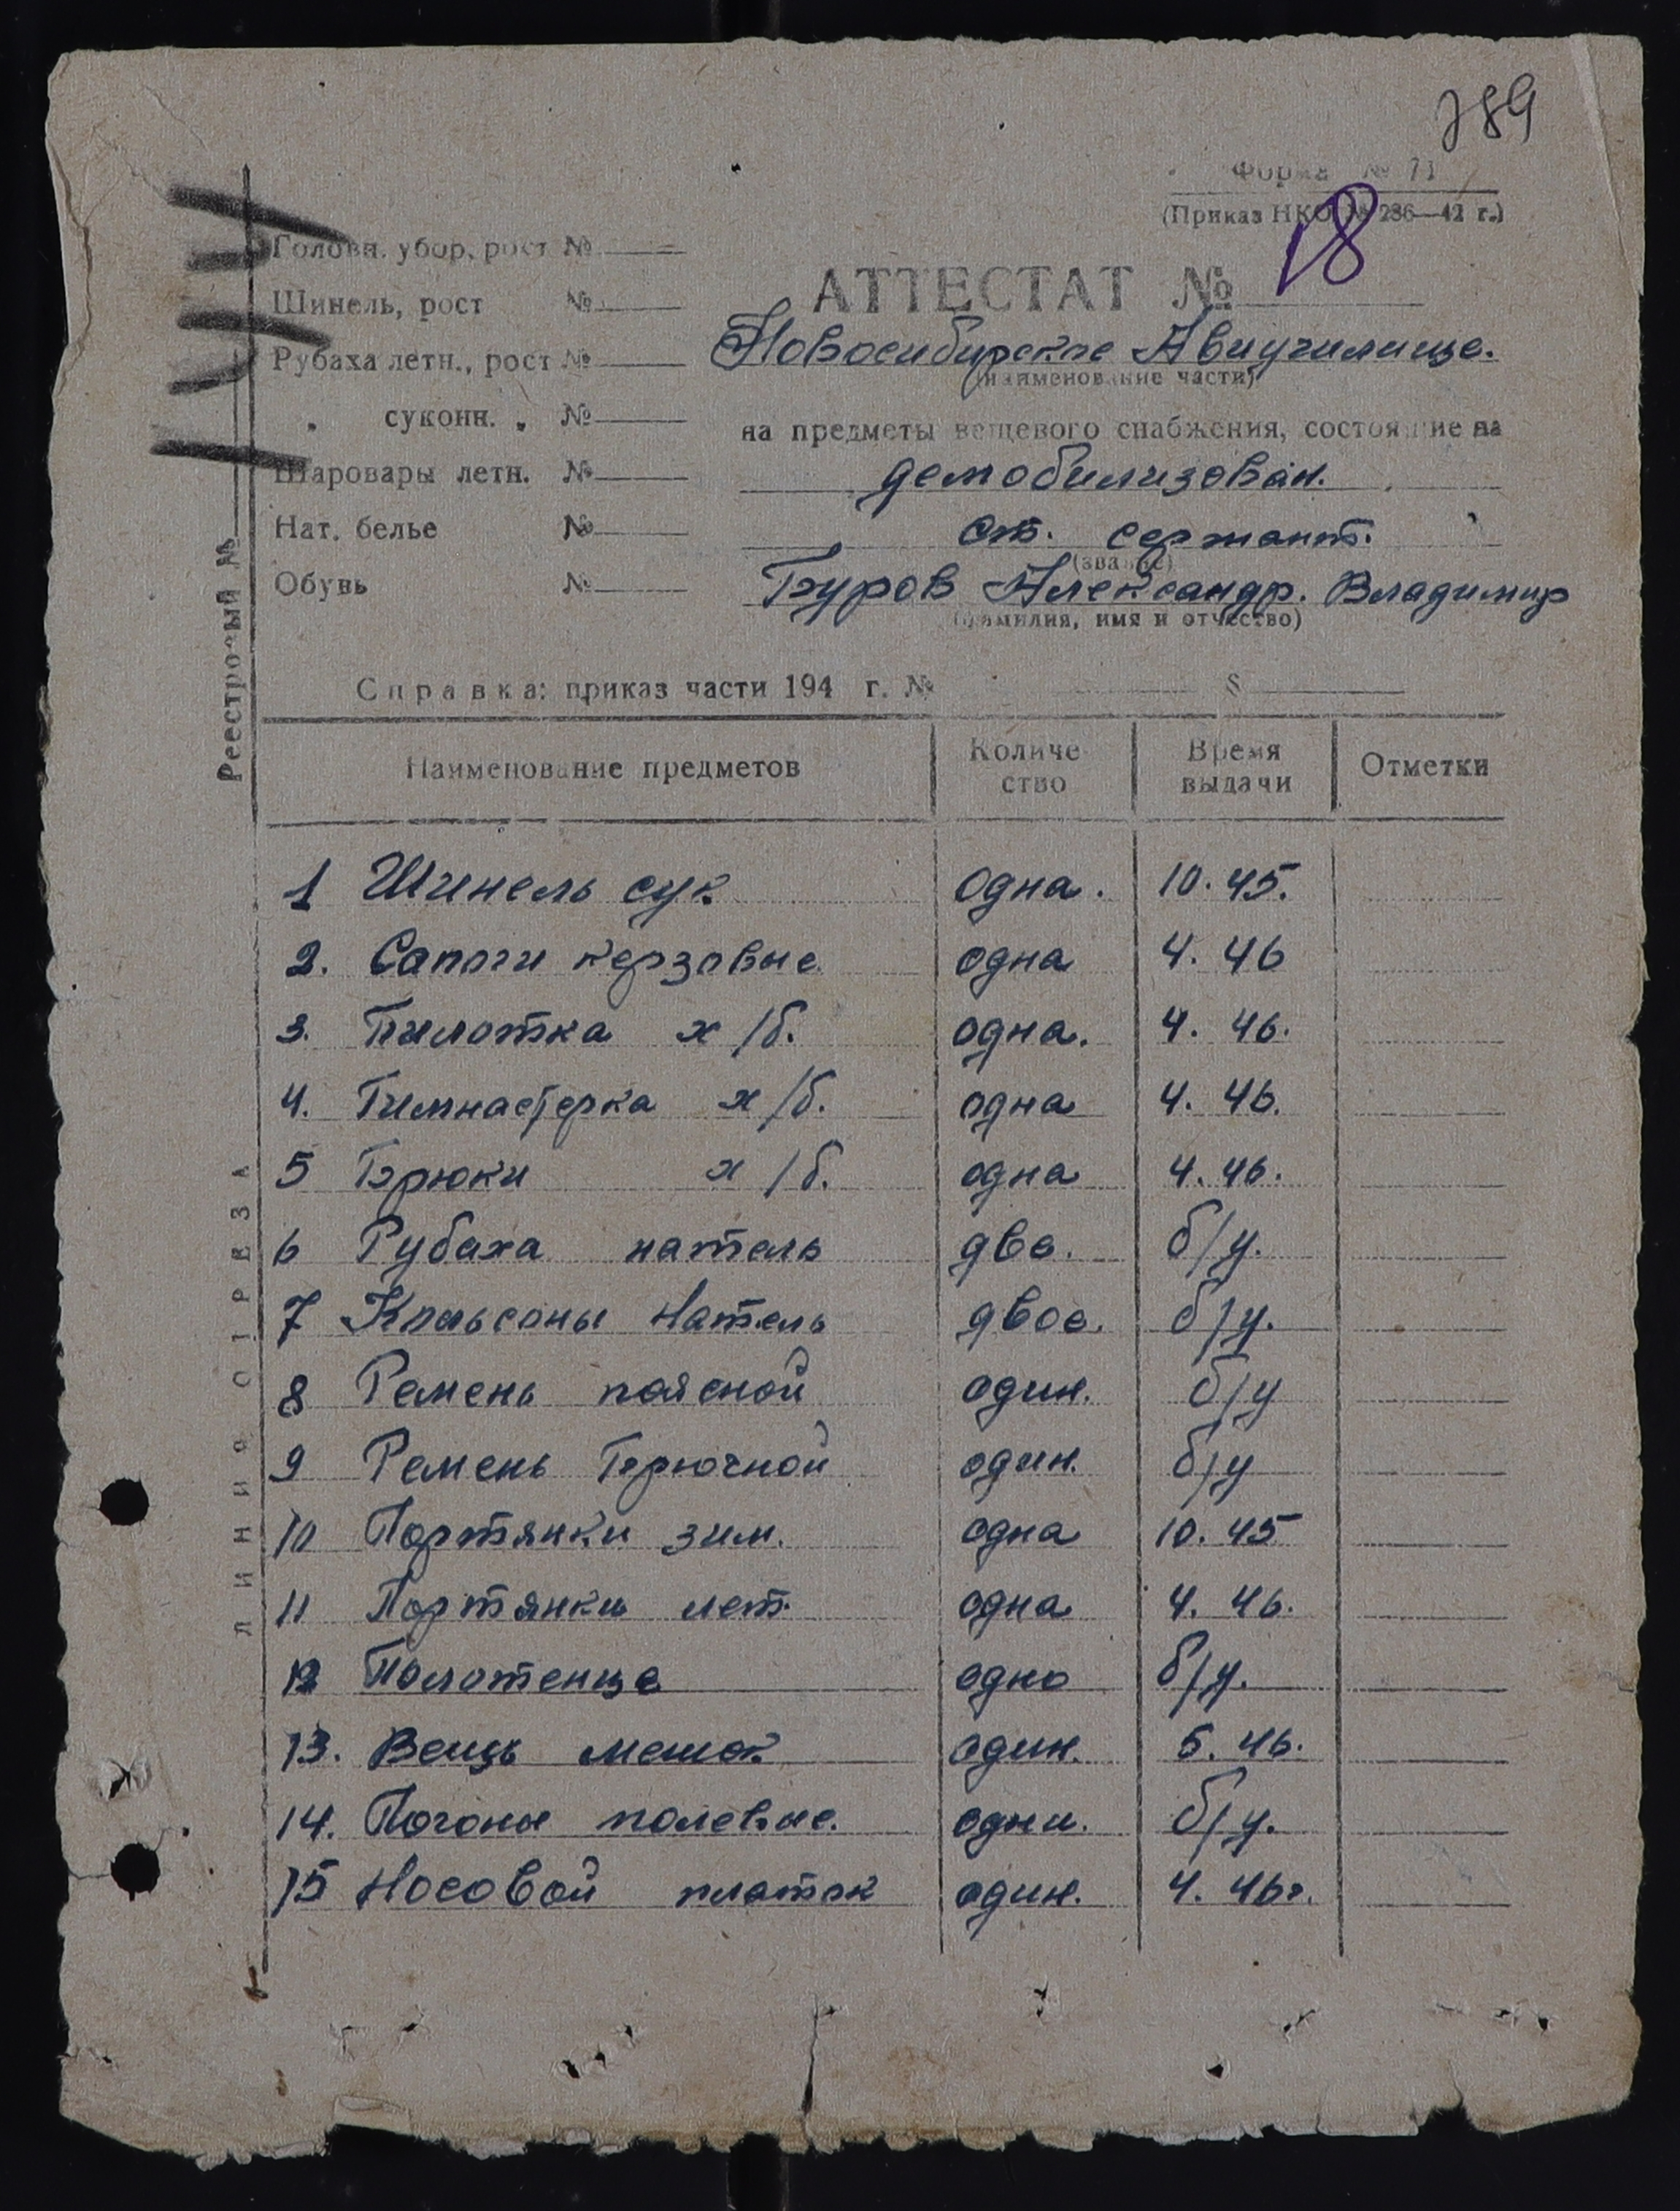 789
Форма № 71
(Приказ НКО № 286—42 г.)
Головн. убор, рост №
Шинель, рост №
Рубаха летн., рост №
„ суконн. „ №
Шаровары летн. №
Нат. белье №
Обувь №
Реестровый №
АТТЕСТАТ № 18
Новосибирское Авиучилище.
(наименование части)
на предметы вещевого снабжения, состоящие на
демобилизован.
ст. сержант.
(звание)
Буров Александр. Владимир
(фамилия, имя и отчество)
Справка: приказ части 194 г. № §
Наименование предметов Количество Время выдачи Отметки
1 Шинель сук одна. 10. 45.
2. Сапоги керзовые одна 4. 46
3. Пилотка х/б. одна. 4. 46.
4. Гимнастерка х/б. одна 4. 46.
5 Брюки х/б. одна 4. 46.
6 Рубаха натель две. б/у.
7 Кальсоны натель двое. б/у.
8 Ремень поясной один. б/у
9 Ремень Брючной один. б/у
10 Портянки зим. одна 10. 45
11 Портянки лет. одна 4. 46.
12 Полотенце одно б/у.
13. Вещь мешок один. 5. 46.
14. Погоны полевые. одни. б/у.
15 Носовой платок один. 4. 46г.
ЛИНИЯ ОТРЕЗА